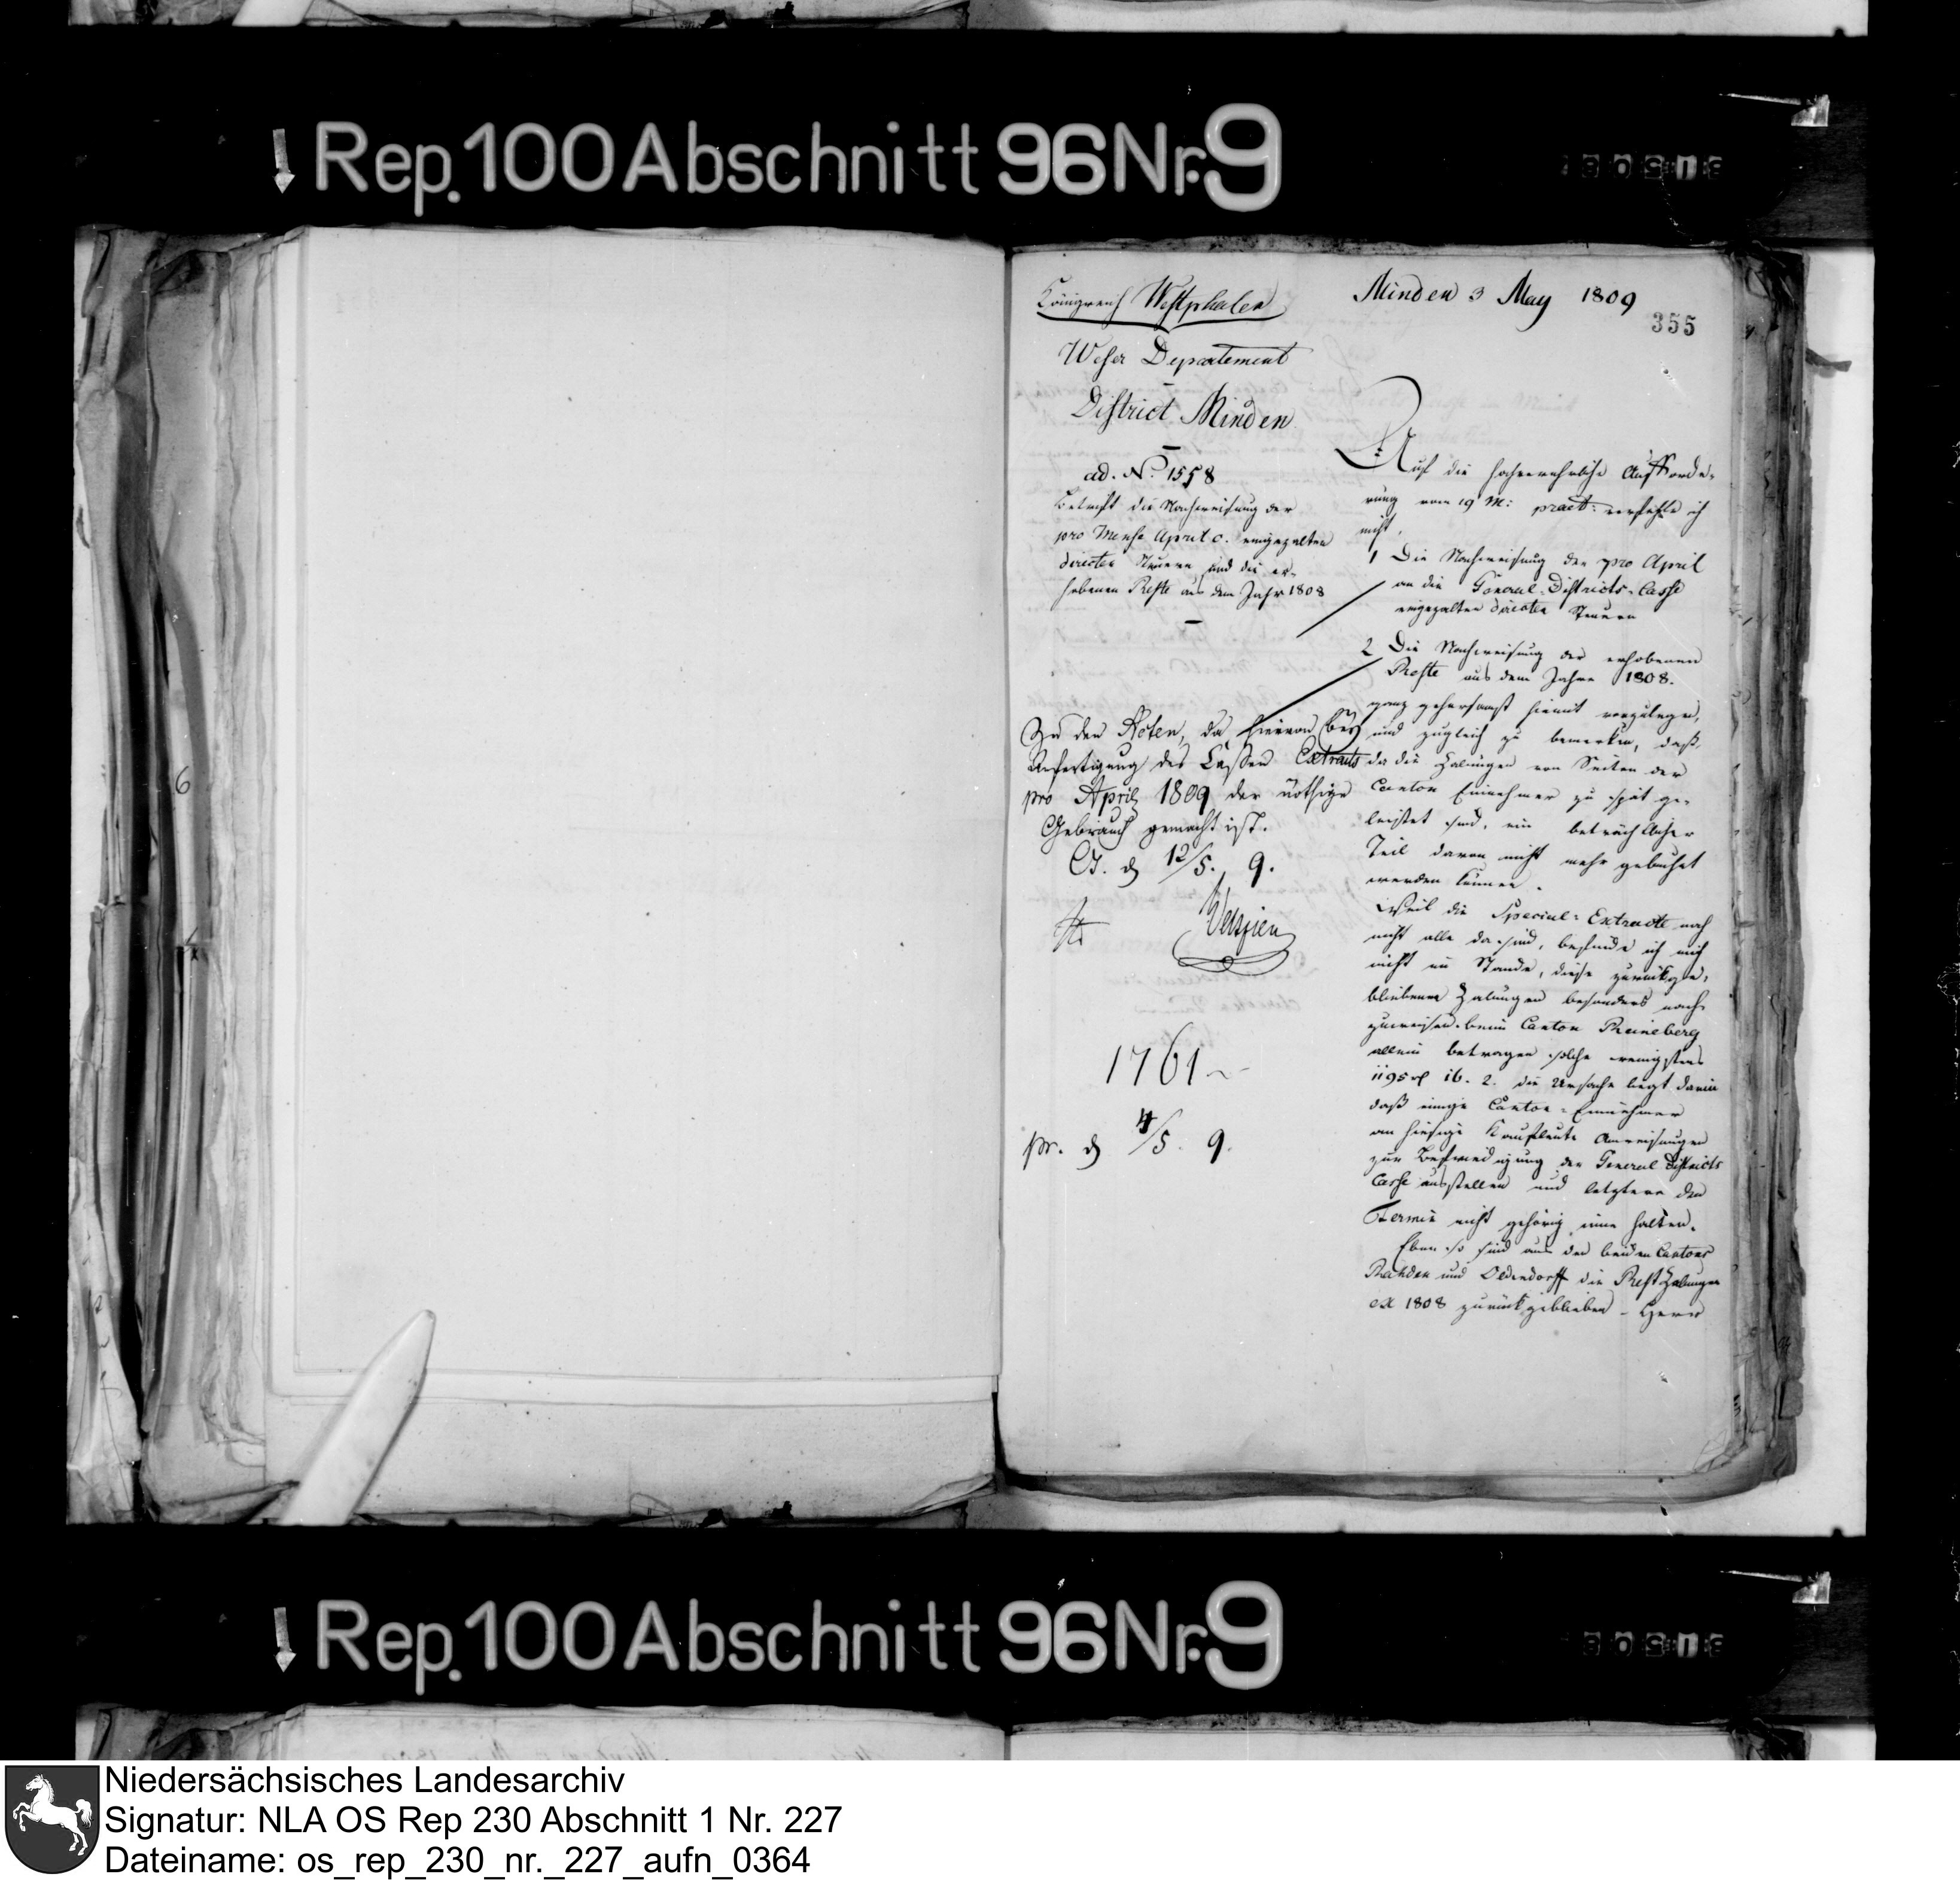 Rep. 100 Abschnitt 96 Nr. 9
Königreich Westphalen
Weser Departement
District Minden
ad. No. 1558
Betrifft die Nachweisung der
pro Mense April c. eingezalten
directen Steuern und die er-
hobenen Reste aus dem Jahr 1808
Zu den Acten, da hiervon bey
Anfertigung des Cassen Extracts
pro April 1809 der nöthige
Gebrauch gemacht ist.
d 12/5. 9.
1761
pr. d 4/5. 9.
Minden 3 May 1809
355
Auf die hochverehrliche Aufforde-
rung vom 19 M: praet: verfehle ich
nicht,
1 Die Nachweisung der pro April
an die General-Districts-Casse
eingezalten directen Steuern
2 Die Nachweisung der erhobenen
Reste aus dem Jahre 1808.
ganz gehorsamst hiemit vorzulegen,
und zugleich zu bemerken, daß,
da die Zalungen von Seiten der
Canton Einnehmer zu spät ge-
leistet sind, ein beträchtlicher
Teil davon nicht mehr gebucht
werden können.
Weil die Special-Extracte noch
nicht alle da sind, befinde ich mich
nicht im Stande, diese zurückge-
bliebene Zalungen besonders nach-
zuweisen. beim Canton Reineberg
allein betragen solche wenigstens
1195 16. 2. die Ursache liegt darin
daß einige Canton-Einnehmer
an hiesige Kaufleute Anweisungen
zur Befriedigung der General Districts
Casse ausstellen und letztere den
Termin nicht gehörig inne halten.
Eben so sind aus den beiden Cantons
Rahden und Oldendorff die Rest Zalungen
ex 1808 zurückgeblieben - Herr
Rep. 100 Abschnitt 96 Nr. 9
Niedersächsisches Landesarchiv
Signatur: NLA OS Rep 230 Abschnitt 1 Nr. 227
Dateiname: os_rep_230_nr._227_aufn_0364